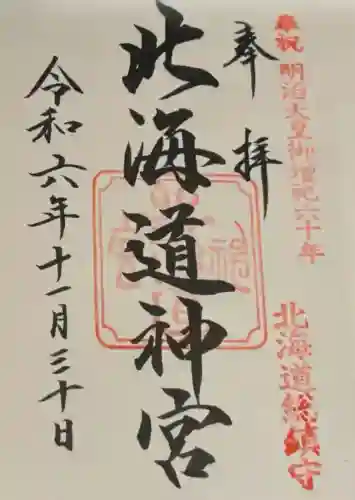 奉祝 明治天皇御増祀六十年
北海道総鎮守
奉拝
北海道神宮
令和六年十一月三十日